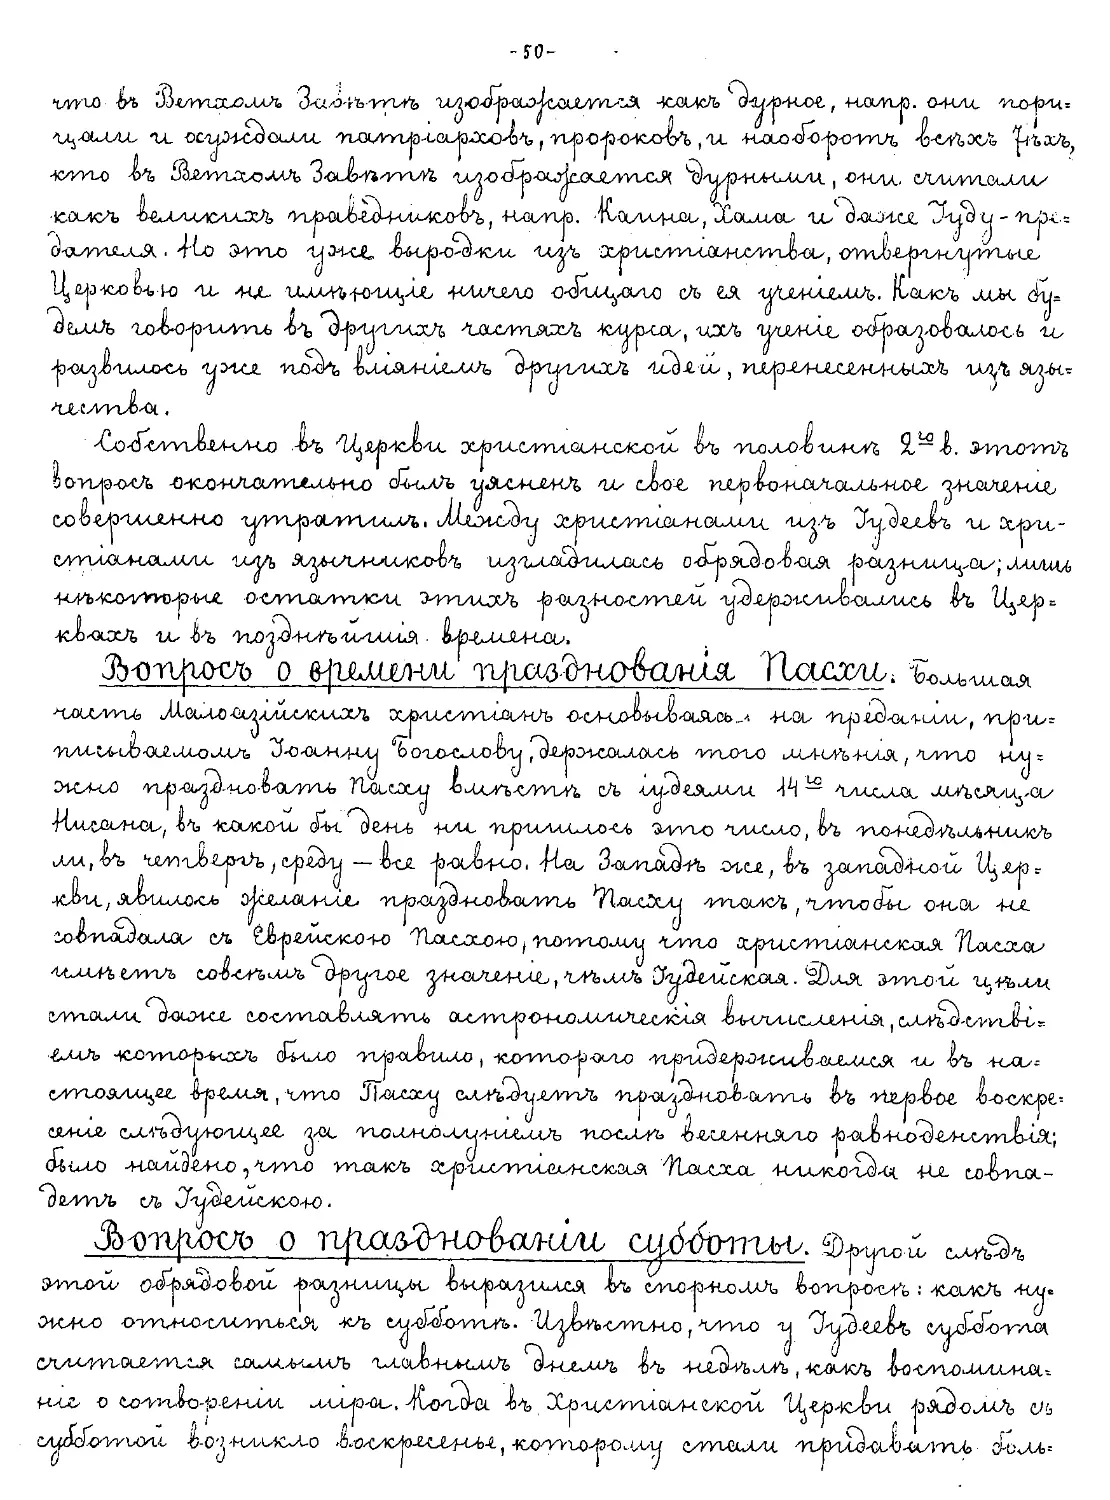 -50-
что въ Ветхомъ Завѣтѣ изображается какъ дурное, напр. они пори=
цали и осуждали патріарховъ, пророковъ, и наоборотъ всѣхъ тѣхъ,
кто въ Ветхомъ Завѣтѣ изображается дурными, они считали
какъ великихъ праведниковъ, напр. Каина, Хама и даже Іуду - пре=
дателя. Но это уже выродки изъ христіанства, отвергнутые
Церковью и не имѣющіе ничего общаго съ ея ученіемъ. Какъ мы бу=
демъ говорить въ другихъ частяхъ курса, ихъ ученіе образовалось и
развилось уже подъ вліяніемъ другихъ идей, перенесенныхъ изъ язы=
чества.
Собственно въ Церкви христіанской въ половинѣ 2го в. этотъ
вопросъ окончательно былъ уясненъ и свое первоначальное значеніе
совершенно утратилъ. Между христіанами изъ Іудеевъ и хри-
стіанами изъ язычниковъ изгладилась обрядовая разница; лишь
нѣкоторые остатки этихъ разностей удерживались въ Цер=
квахъ и въ позднѣйшія времена.
Вопросъ о времени празднованія Пасхи. Большая
часть Малоазійскихъ христіанъ основываясь на преданіи, при=
писываемомъ Іоанну Богослову, держалась того мнѣнія, что ну=
жно праздновать Пасху вмѣстѣ съ іудеями 14го числа мѣсяца
Нисана, въ какой бы день ни пришлось это число, въ понедѣльникъ
ли, въ четвергъ, среду – все равно. На Западѣ же, въ западной Цер=
кви, явилось желаніе праздновать Пасху такъ, чтобы она не
совпадала съ Еврейскою Пасхою, потому что христіанская Пасха
имѣетъ совсѣмъ другое значеніе, чѣмъ Іудейская. Для этой цѣли
стали даже составлять астрономическія вычисленія, слѣдстві=
емъ которыхъ было правило, котораго придерживаемся и въ на=
стоящее время, что Пасху слѣдуетъ праздновать въ первое воскре=
сеніе слѣдующее за полнолуніемъ послѣ весенняго равноденствія;
было найдено, что такъ христіанская Пасха никогда не совпа-
детъ съ Іудейскою.
Вопросъ о празднованіи субботы. Другой слѣдъ
этой обрядовой разницы выразился въ спорномъ вопросѣ: какъ ну=
жно относиться къ субботѣ. Извѣстно, что у Іудеевъ суббота
считается самымъ главнымъ днемъ въ недѣлѣ, какъ воспомина=
ніе о сотвореніи міра. Когда въ Христіанской Церкви рядомъ съ
субботой возникло воскресенье, которому стали придавать боль=